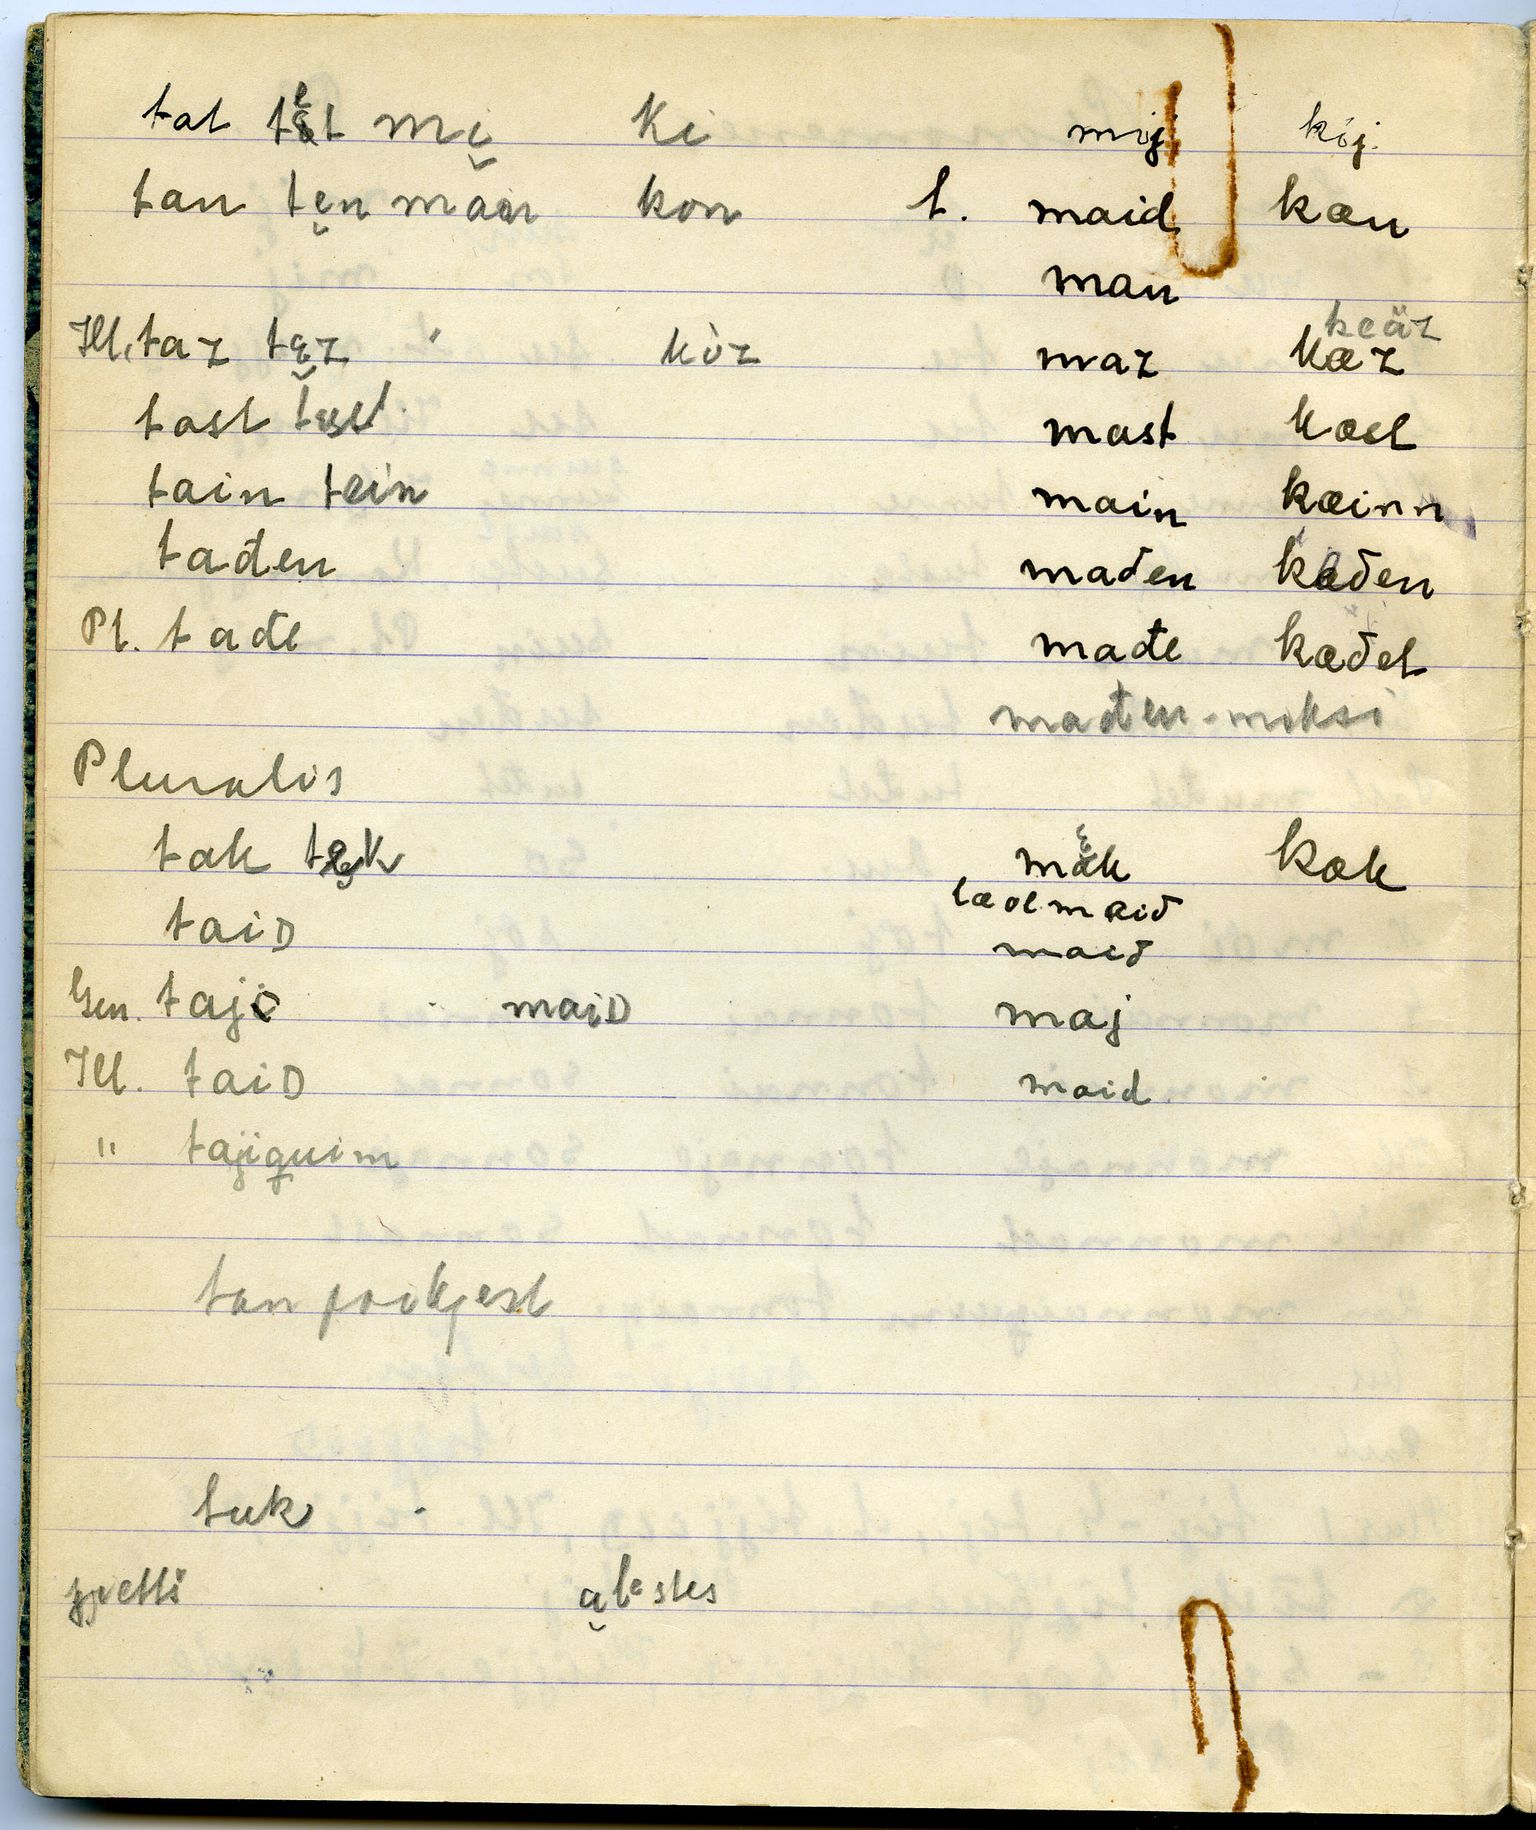 tat tet mi̮ Ki mij kij.
tan te̮n man kon t. maid kæn
man
keäz
Ill. taz te̮z " kòz maz kæz
tast test mast kæst
tain tein main kæinn
tađen mađen kæđen
Pl. tađe mađe kæđet
mađen-moksi
Pluralis
tak tek mak kæk
taiD maid
Gen. taj maiD maj
Ill. taiD maid
" tajiguim
tan
tuk